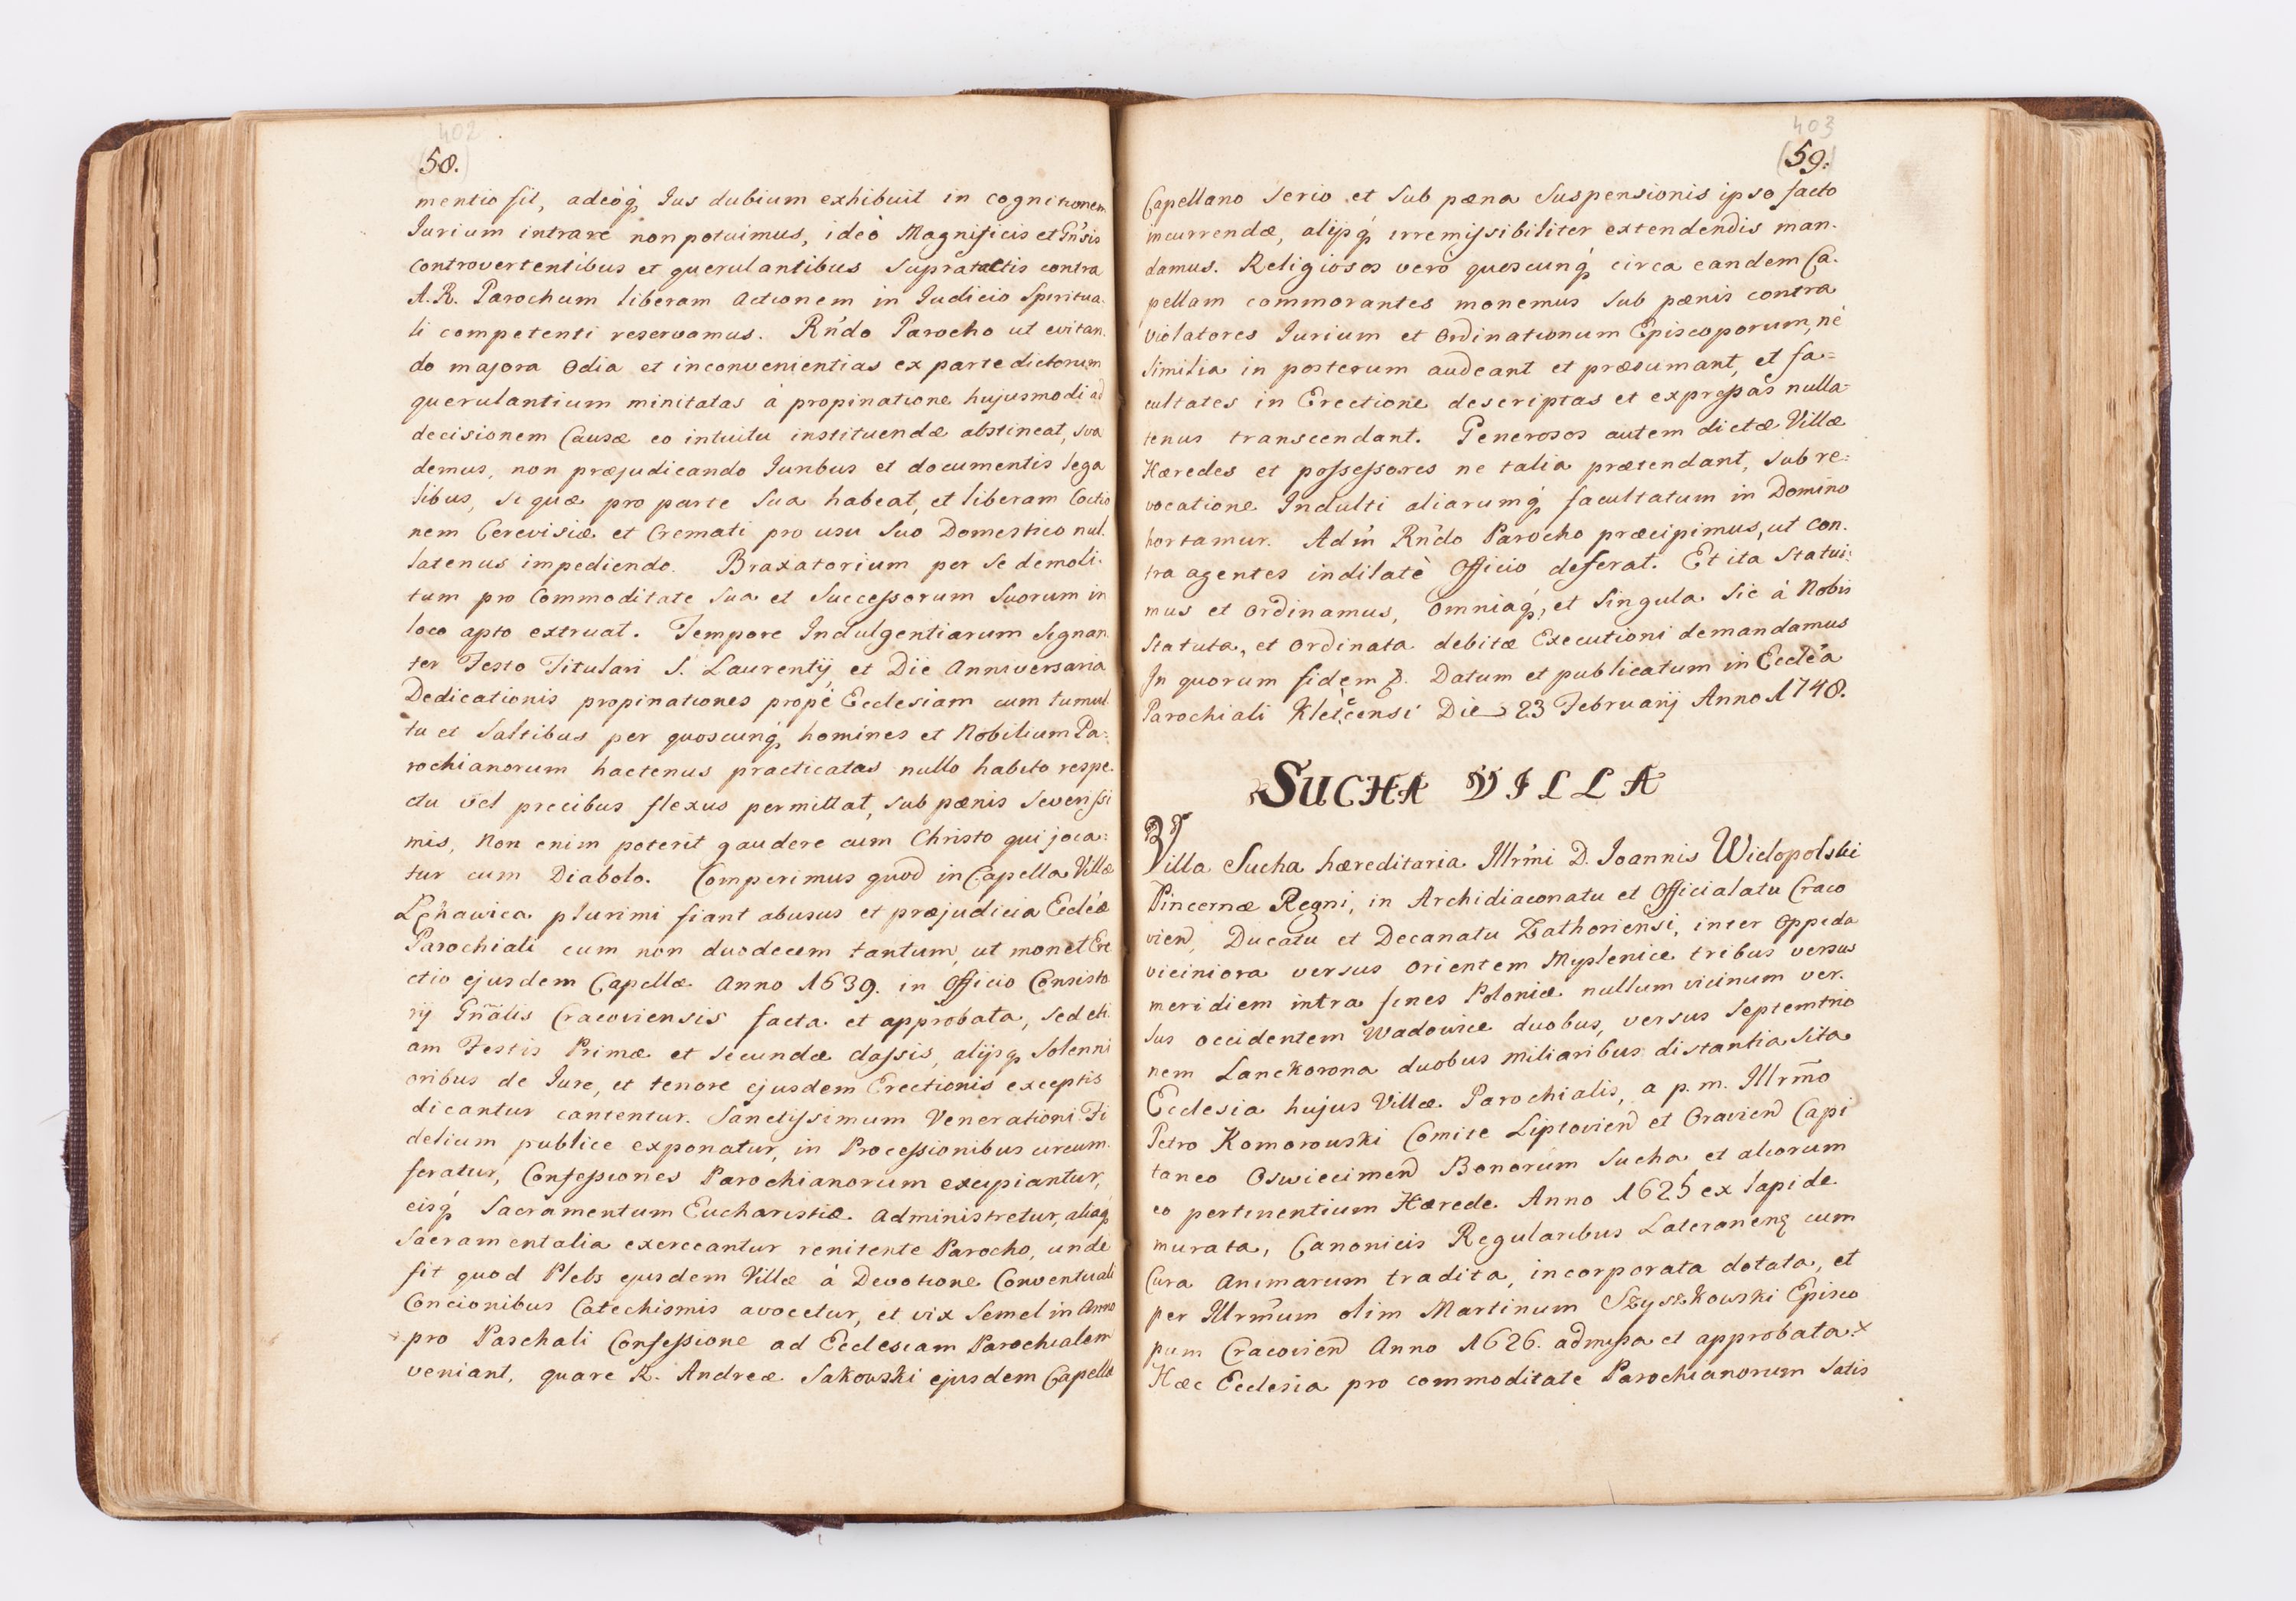 402
(58.)
mentio fit, adeóq́ Ius dubium exhibuit in cognitionem
Iurium intrare non potuimus, ideò Magnificis et Gñsis
controvertentibus et querulantibus supratactis contra
A. R. Parochum liberam actionem in Iudicio Spiritua-
li competenti reservamus. Rńdo Parocho ut evitan-
do majora odia et inconvenientias ex parte dictorum
querulantium minitatas à propinatione hujusmodi ad
decisionem Causæ eo intuitu instituendæ abstineat, sva
demus, non præjudicando Iuribus et documentis lega
libus, si quæ pro parte sua habeat, et liberam Coctio
nem Cerevisiæ et Cremati pro usu suo Domestico nul.
latenus impediendo. Braxatorium per se demoli-
tum pro Commoditate sua et Successorum suorum in
loco apto extruat. Tempore Indulgentiarum signan
ter Festo Titulari S. Laurentij et Die Anniversaria
Dedicationis propinationes propè Ecclesiam cum tumul
tu et Saltibus per quoscunq́ homines et Nobilium Pa:
rochianorum hactenus practicatas nullo habito respe.
ctu vel precibus flexus permittat, sub pænis severissi
mis, Non enim poterit gaudere cum Christo qui joca:
tur cum Diabolo. Comperimus quod in Capella Villæ
Lęhawica plurimi fiant abusus et præjudicia Eccléæ
Parochiali cum non duodecem tantum, ut monet Ere
ctio ejusdem Capellæ Anno 1639. in Officio Consisto
rij Gñãlis Cracoviensis facta et approbata, sed eti
am Festis Primæ et secundæ classis, alijsq́ Solenni
oribus de Iure, et tenore ejusdem Erectionis exceptis
dicantur cantentur. Sanctissimum Venerationi Fi
delium publice exponatur, in Processionibus circum
feratur, Confessiones Parochianorum excipiantur,
eisq́ Sacramentum Eucharistiæ administretur, aliaq́
Sacramentalia exerceantur renitente Parocho, unde
fit quod Plebs ejusdem Villæ à Devotione Conventuali
Concionibus Catechismis avocetur, et vix semel in Anno
pro Paschali Confessione ad Ecclesiam Parochialem
veniant, quare R. Andreæ Sakowski ejusdem Capellæ
403
(59.)
Capellano serio et sub pæna suspensionis ipso facto
incurrendæ, alijsq́ irremissibiliter extendendis man-
damus. Religiosos verò quoscunq́ circa eandem Ca-
pellam commorantes monemus sub pænis contra
violatores Iurium et Ordinationum Episcoporum, nè
similia in posterum audeant et præsumant, et fa=
cultates in Erectione descriptas et expressas nulla=
tenus transcendant. Generosos autem dictæ Villæ
Hæredes et possessores ne talia prætendant, sub re:
vocatione Indulti aliarumq́ facultatum in Domino
hortamur. Adḿ Rńdo Parocho præcipimus, ut con-
tra agentes indilatè Officio deferat. Et ita Statui:
mus et ordinamus, omniaq́, et singula sic à Nobis
Statuta, et ordinata debitæ Executioni demandamus
In quorum fidem p. Datum et publicatum in Eccléa
Parochiali Kletčensi Die 23 Februarij Anno 1748.
SUCHA VILLA
Villa Sucha hæreditaria Illrm̃i D. Ioannis Wielopolski
Pincernæ Regni, in Archidiaconatu et Officialatu Craco
vien̄, Ducatu et Decanatu Zathoriensi, inter oppida
viciniora versus orientem Myslenice tribus versus
meridiem intra fines Poloniæ nullum vicinum ver.
sus occidentem Wadowice duobus, versus Septemtrio
nem Lanckorona duobus miliaribus distantia sita
Ecclesia hujus Villæ Parochialis, a p. m. Illrm̃o
Petro Komorowski Comite Liptovien̄ et Oravien̄ Capi
taneo Oswiecimen̄ Bonorum Sucha et aliorum
eo pertinentium Hærede Anno 1625 ex lapide
murata, Canonicis Regularibus Lateranenq cum
Cura animarum tradita, incorporata dotata, et
per Illrm̃um olim Martinum Szyszkowski Episco
pum Cracovien̄ Anno 1626. admissa et approbata. x
Hæc Ecclesia pro commoditate Parochianorum satis